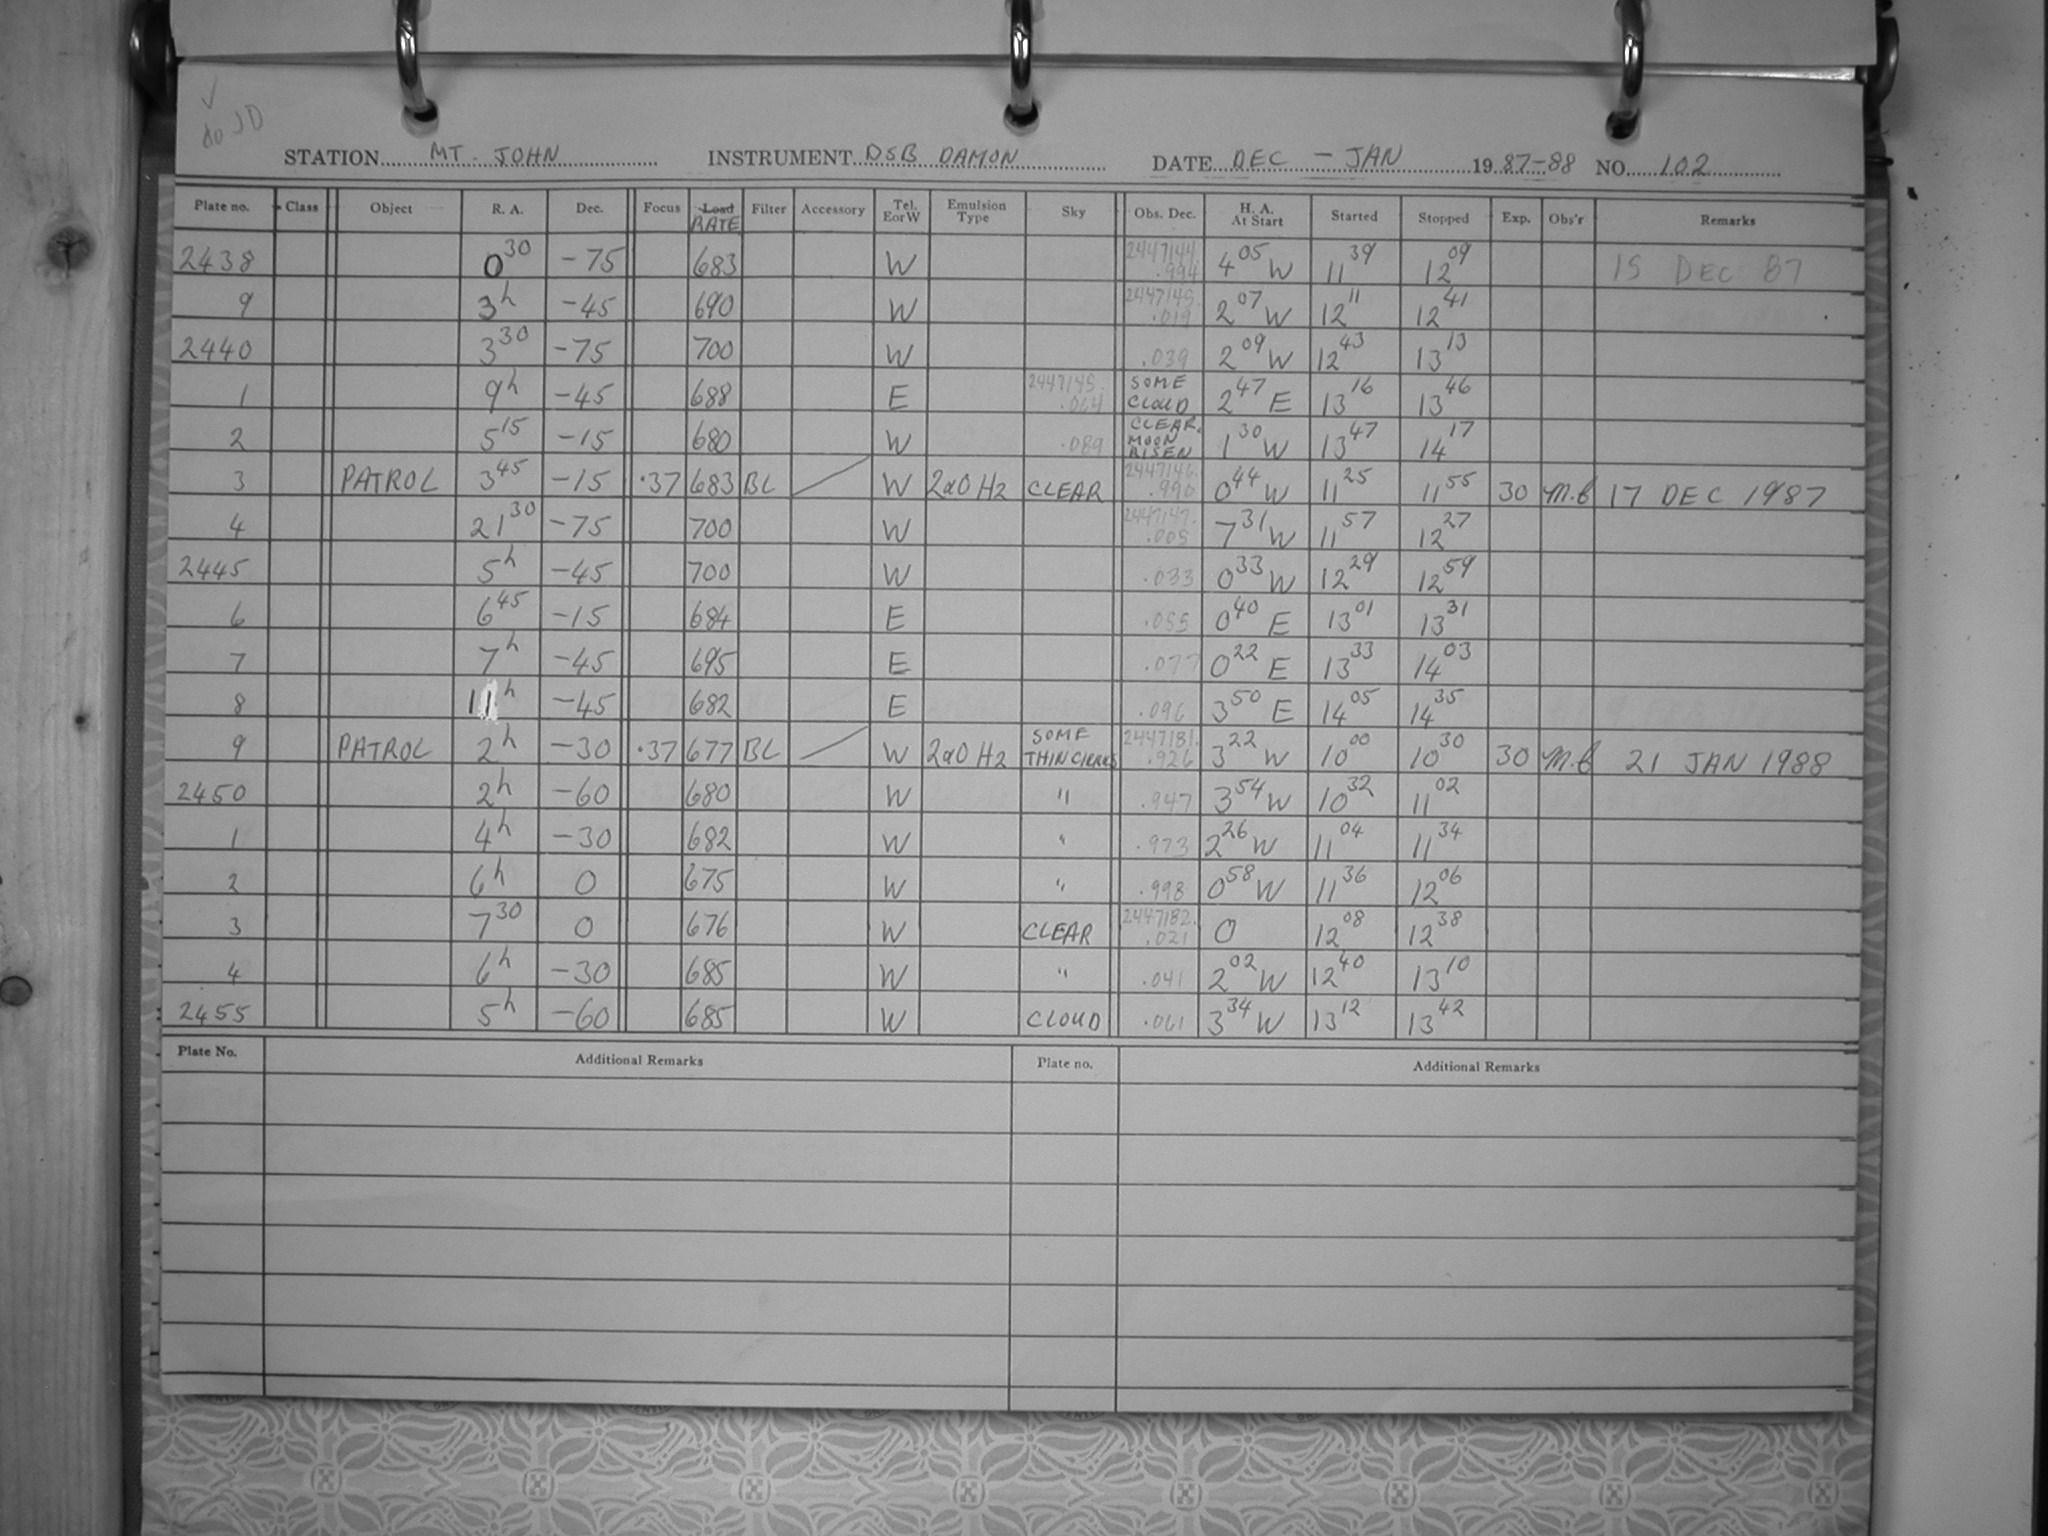 √
do JD
STATION MT. JOHN INSTRUMENT DSB DAMON DATE DEC - JAN 1987-88 NO. 102
Plate no. Class Object R. A. Dec. Focus Load RATE Filter Accessory Tel. E or W Emulsion Type Sky Obs. Dec. H. A. At Start Started Stopped Exp. Obs'r Remarks
2438 0 30 -75 683 W 2447144.994 4 05 W 11 39 12 09 15 DEC 87
9 3h -45 690 W 2447145.019 2 07 W 12 11 12 41
2440 3 30 -75 700 W .039 2 09 W 12 43 13 13
1 9h -45 688 E 2447145.064 SOME CLOUD 2 47 E 13 16 13 46
2 5 15 -15 680 W .089 CLEAR. MOON RISEN 1 30 W 13 47 14 17
3 PATROL 3 45 -15 .37 683 BL W 2aO H2 CLEAR 2447146.990 0 44 W 11 25 11 55 30 M.B 17 DEC 1987
4 21 30 -75 700 W 2447147.005 7 31 W 11 57 12 27
2445 5h -45 700 W .033 0 33 W 12 29 12 59
6 6 45 -15 684 E .055 0 40 E 13 01 13 31
7 7h -45 695 E .077 0 22 E 13 33 14 03
8 11h -45 682 E .096 3 50 E 14 05 14 35
9 PATROL 2h -30 .37 677 BL W 2aO H2 SOME THIN CIRRUS 2447181.926 3 22 W 10 00 10 30 30 M.B 21 JAN 1988
2450 2h -60 680 W " .947 3 54 W 10 32 11 02
1 4h -30 682 W " .973 2 26 W 11 04 11 34
2 6h 0 675 W " .998 0 58 W 11 36 12 06
3 7 30 0 676 W CLEAR 2447182.021 0 12 08 12 38
4 6h -30 685 W " .041 2 02 W 12 40 13 10
2455 5h -60 685 W CLOUD .061 3 34 W 13 12 13 42
Plate No. Additional Remarks Plate no. Additional Remarks